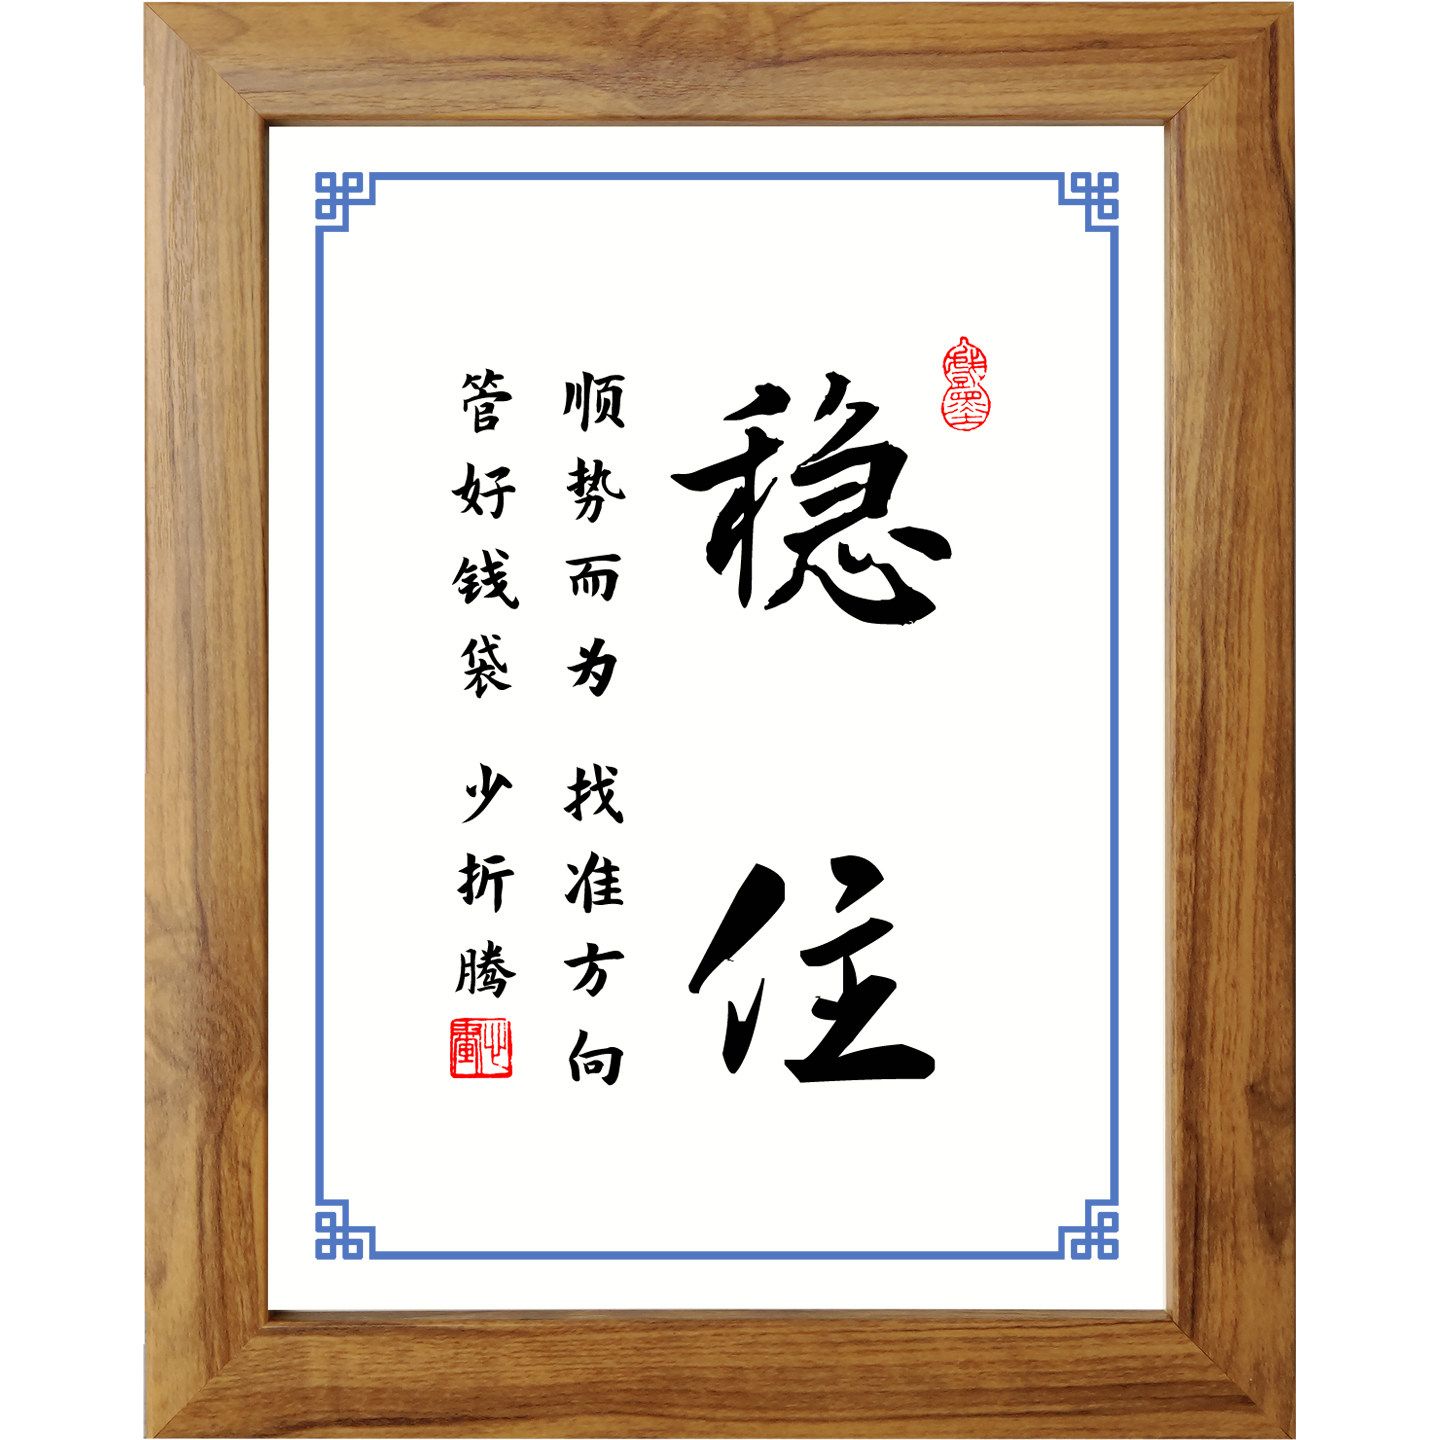 戲墨
稳住
顺势而为 找准方向
管好钱袋 少折腾